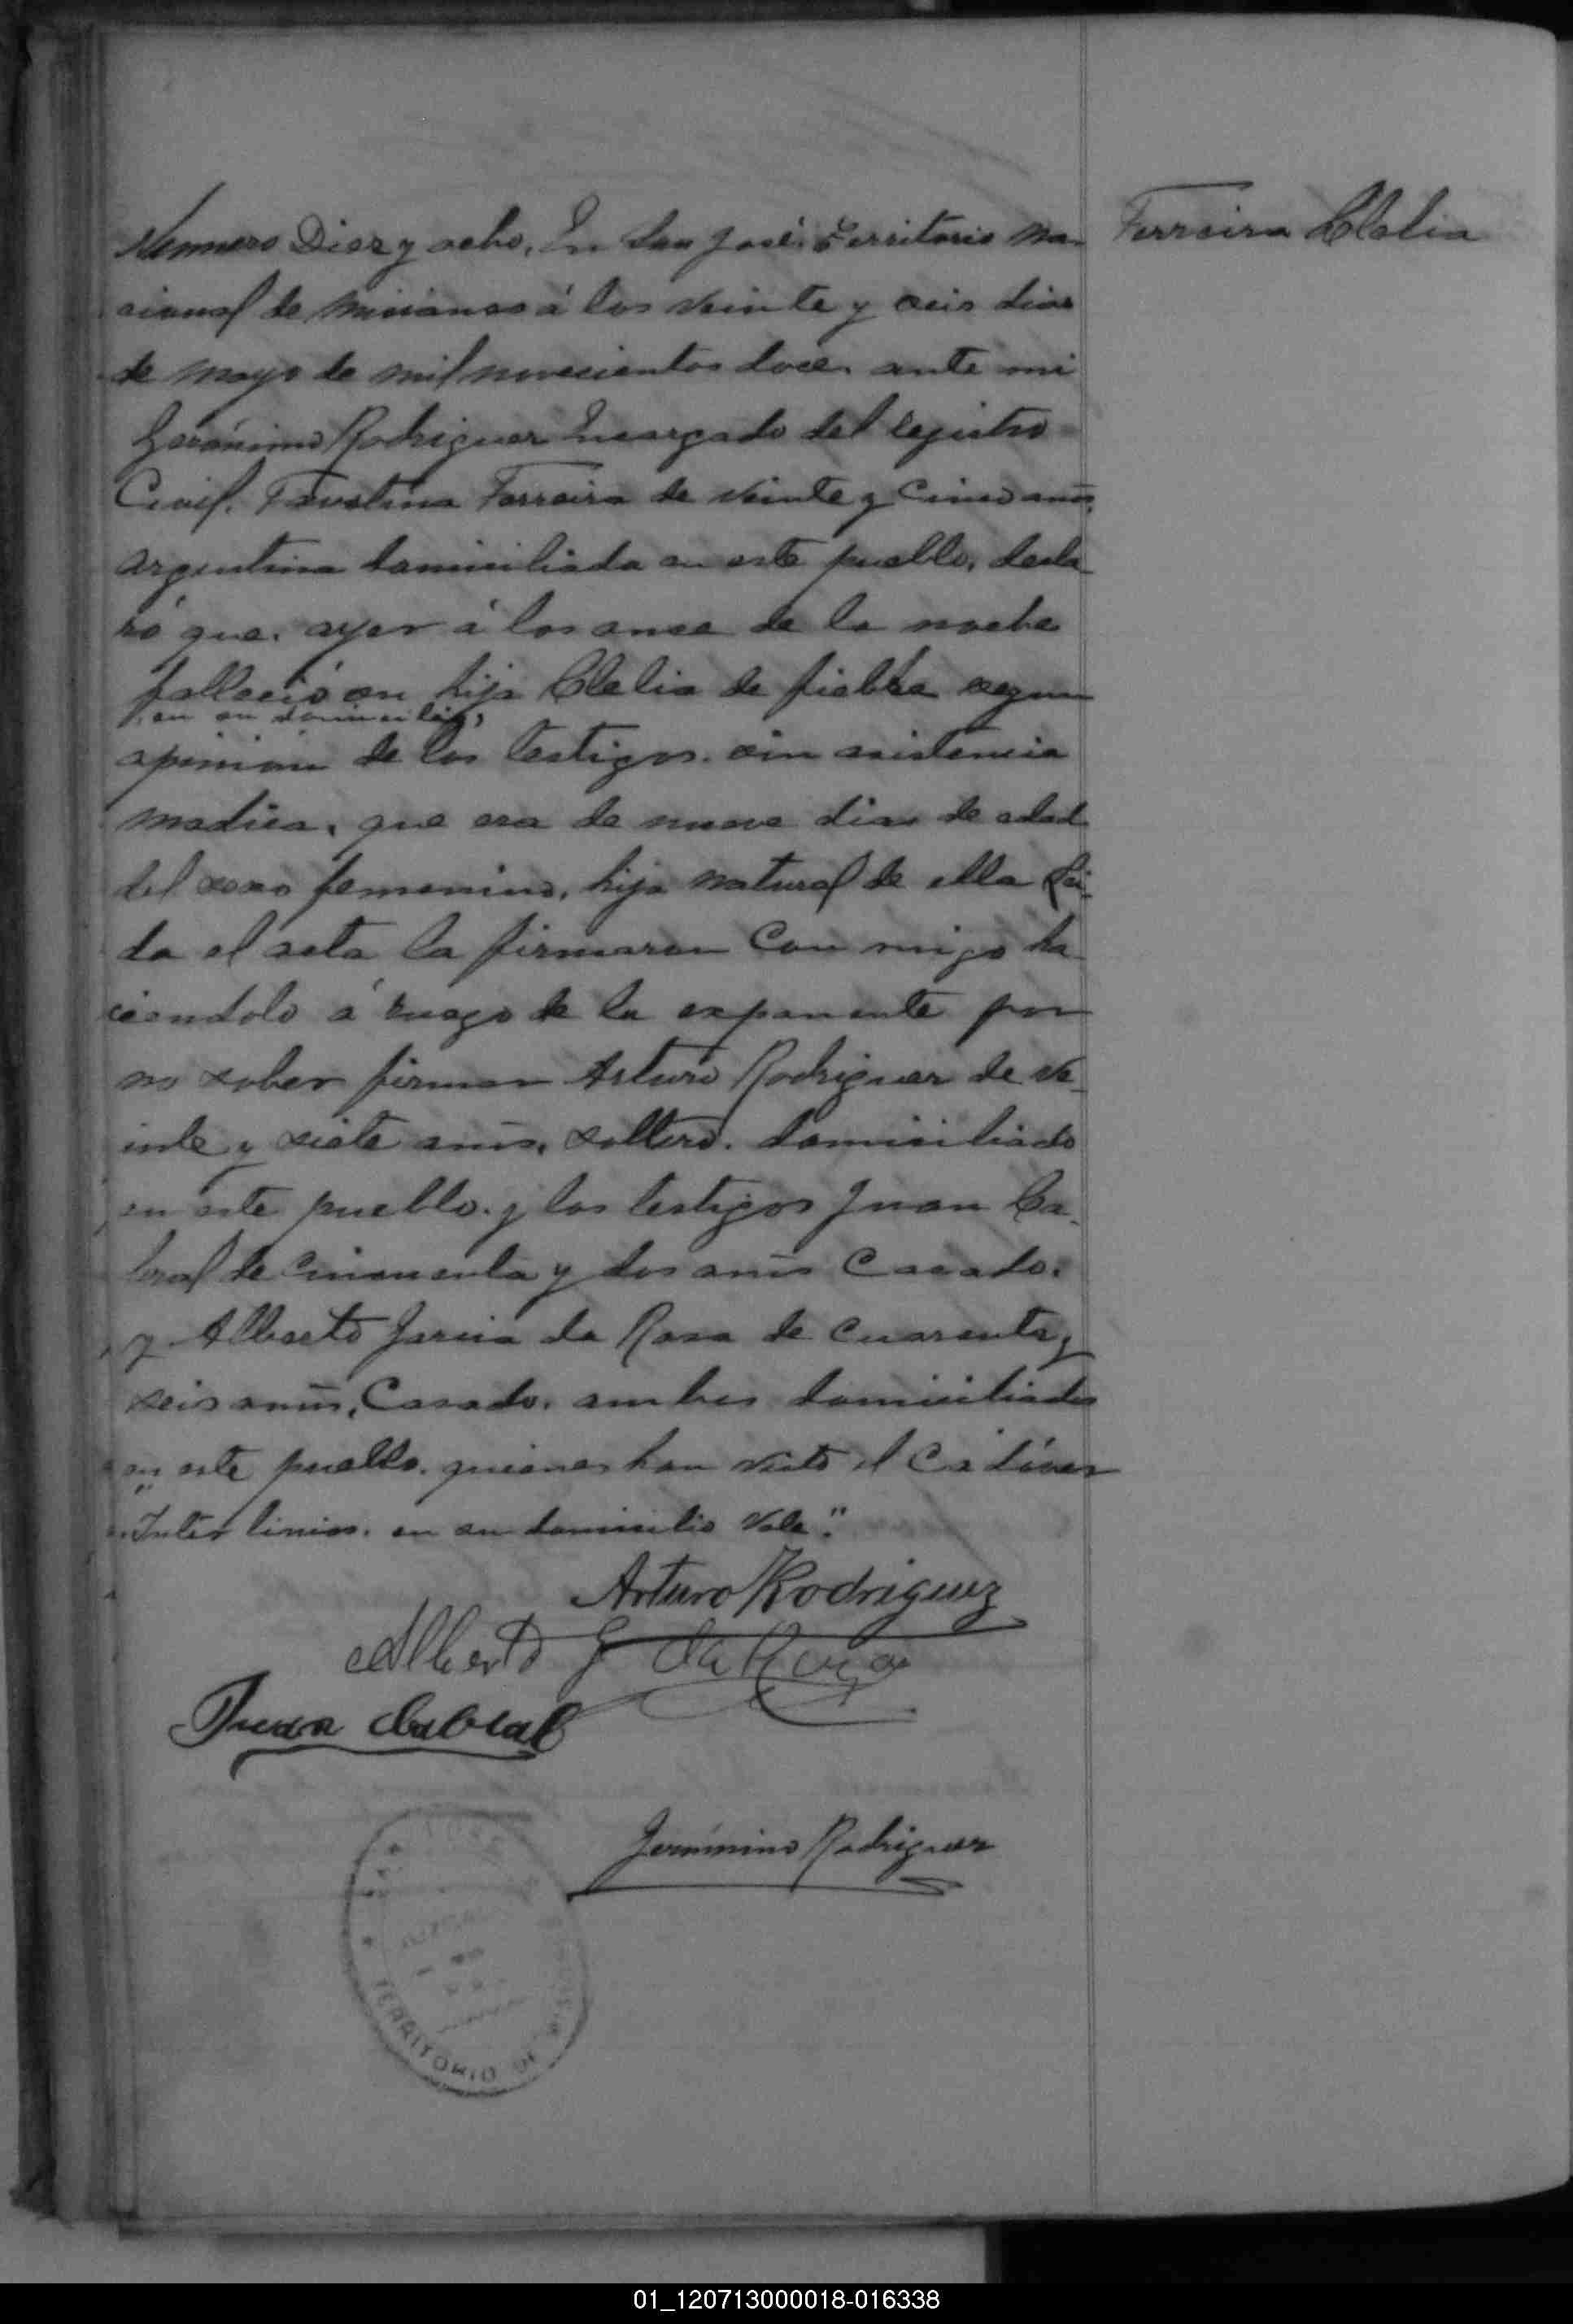 Numero Diez y ocho, En San José, Territorio Na-
cional de Misiones á los veinte y seis dias
de Mayo de mil novecientos doce, ante mi
Gerónimo Rodriguez Encargado del Registro
Civil, Faustina Ferreira de veinte y cinco anõs,
argentina domiciliada en este pueblo, decla-
ró que, ayer á las once de la noche
falleció su hija Clelia de fiebre segun
en su domicilio,
opinion de los testigos, sin asistencia
medica, que era de nueve dias de edad
del sexo femenino, hija natural de ella Lei-
da el acta la firmaron con migo ha-
ciendolo á ruego de la exponente por
no saber firmar Arturo Rodriguez de ve-
inte y siete anõs, soltero, domiciliado
en este pueblo, y los testigos Juan Ca-
bral de cincuenta y dos anõs Casado,
y Alberto Garcia da Rosa de cuarenta y
seis anõs, Casado, ambos domiciliados
en este pueblo, quienes han visto el Cadáver
"Inter linias, en su domicilio Vale".
Arturo Rodriguez
Alberto G da Rosa
Juan Cabral
Gerónimo Rodriguez
TERRITORIO DE
Ferreira Clelia
01_120713000018-016338